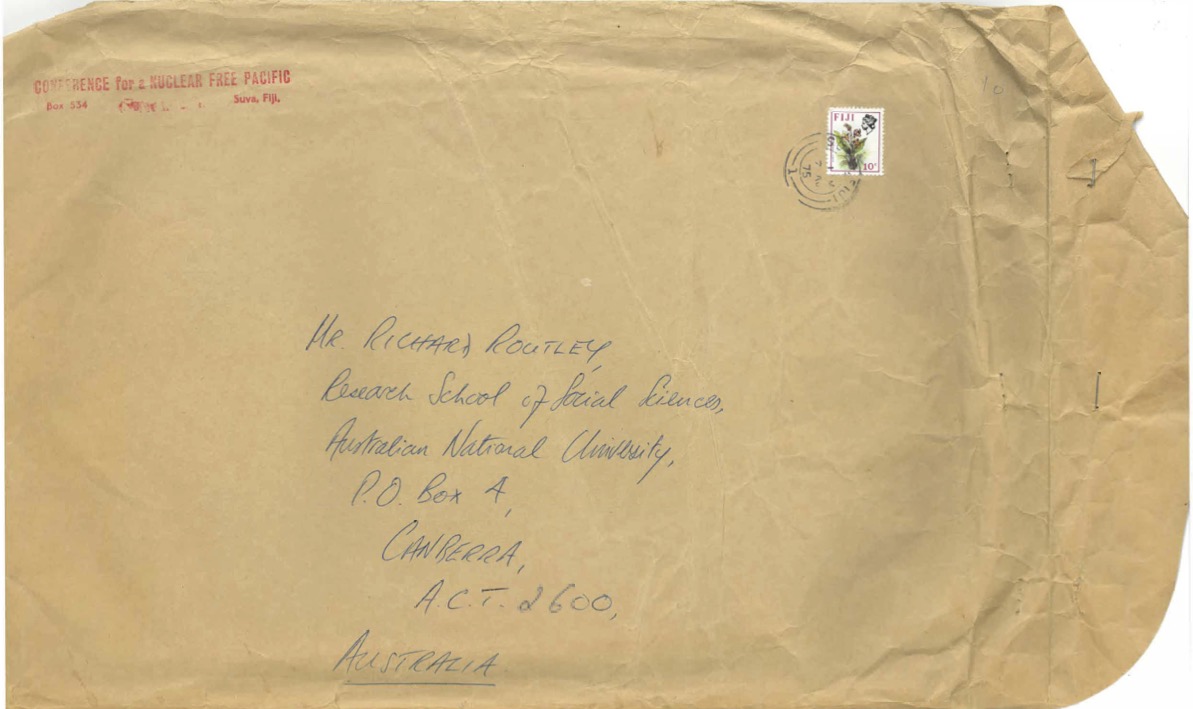 CONFERENCE for a NUCLEAR FREE PACIFIC
Box 534 Suva, Fiji.
10
FIJI
10c
FIJI
75
1
Mr. RICHARD ROUTLEY,
Research School of Social Sciences,
Australian National University,
P.O. Box 4,
CANBERRA,
A.C.T. 2600,
AUSTRALIA